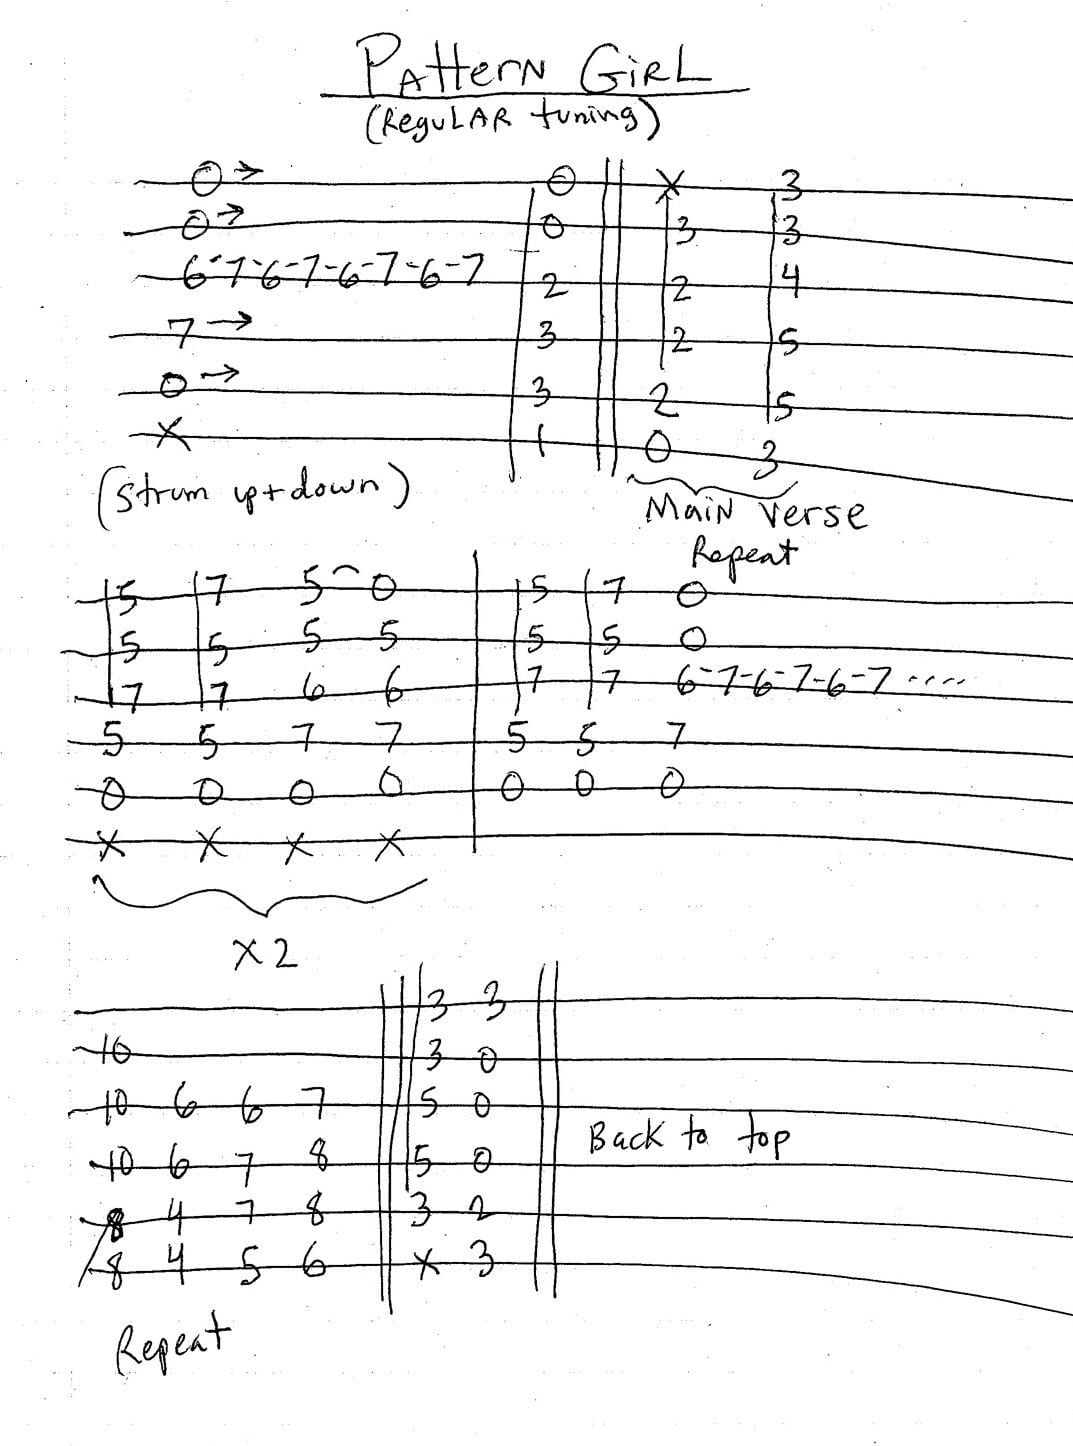 Pattern Girl
(Regular tuning)
0→ 0 X 3
0→ 0 3 3
6-7-6-7-6-7-6-7 2 2 4
7→ 3 2 5
0→ 3 2 5
X 1 0 3
(Strum up + down)
Main Verse
Repeat
5 7 5⁀0 5 7 0
5 5 5 5 5 5 0
7 7 6 6 7 7 6-7-6-7-6-7....
5 5 7 7 5 5 7
0 0 0 0 0 0 0
X X X X
X2
3 3
10 3 0
10 6 6 7 5 0
10 6 7 8 5 0
8 4 7 8 3 2
8 4 5 6 X 3
Back to top
Repeat